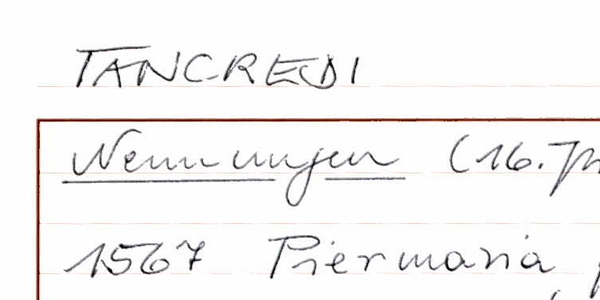 TANCREDI
Nennungen (16. Jh
1567 Piermaria